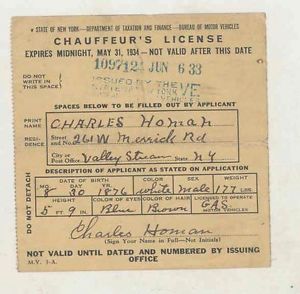 STATE OF NEW YORK—DEPARTMENT OF TAXATION AND FINANCE—BUREAU OF MOTOR VEHICLES
CHAUFFEUR'S LICENSE
EXPIRES MIDNIGHT, MAY 31, 1934—NOT VALID AFTER THIS DATE
DO NOT WRITE IN THIS SPACE
109712 4 JUN 6 33
ISSUED BY THE
SPACES BELOW TO BE FILLED OUT BY APPLICANT
PRINT NAME CHARLES Homan
Street and No. 261 W Merrick Rd
City or Post Office Valley Stream State NY
DESCRIPTION OF APPLICANT AS STATED ON APPLICATION
DO NOT DETACH
DATE OF BIRTH COLOR SEX WEIGHT
8 30 1876 White Male 177 LBS.
HEIGHT COLOR OF EYES COLOR OF HAIR
5 FT. 9 IN. Blue Brown GAS MOTOR VEHICLES
Charles Homan
(Sign Your Name in Full—Not Initials)
NOT VALID UNTIL DATED AND NUMBERED BY ISSUING OFFICE
M.V. 3-A.